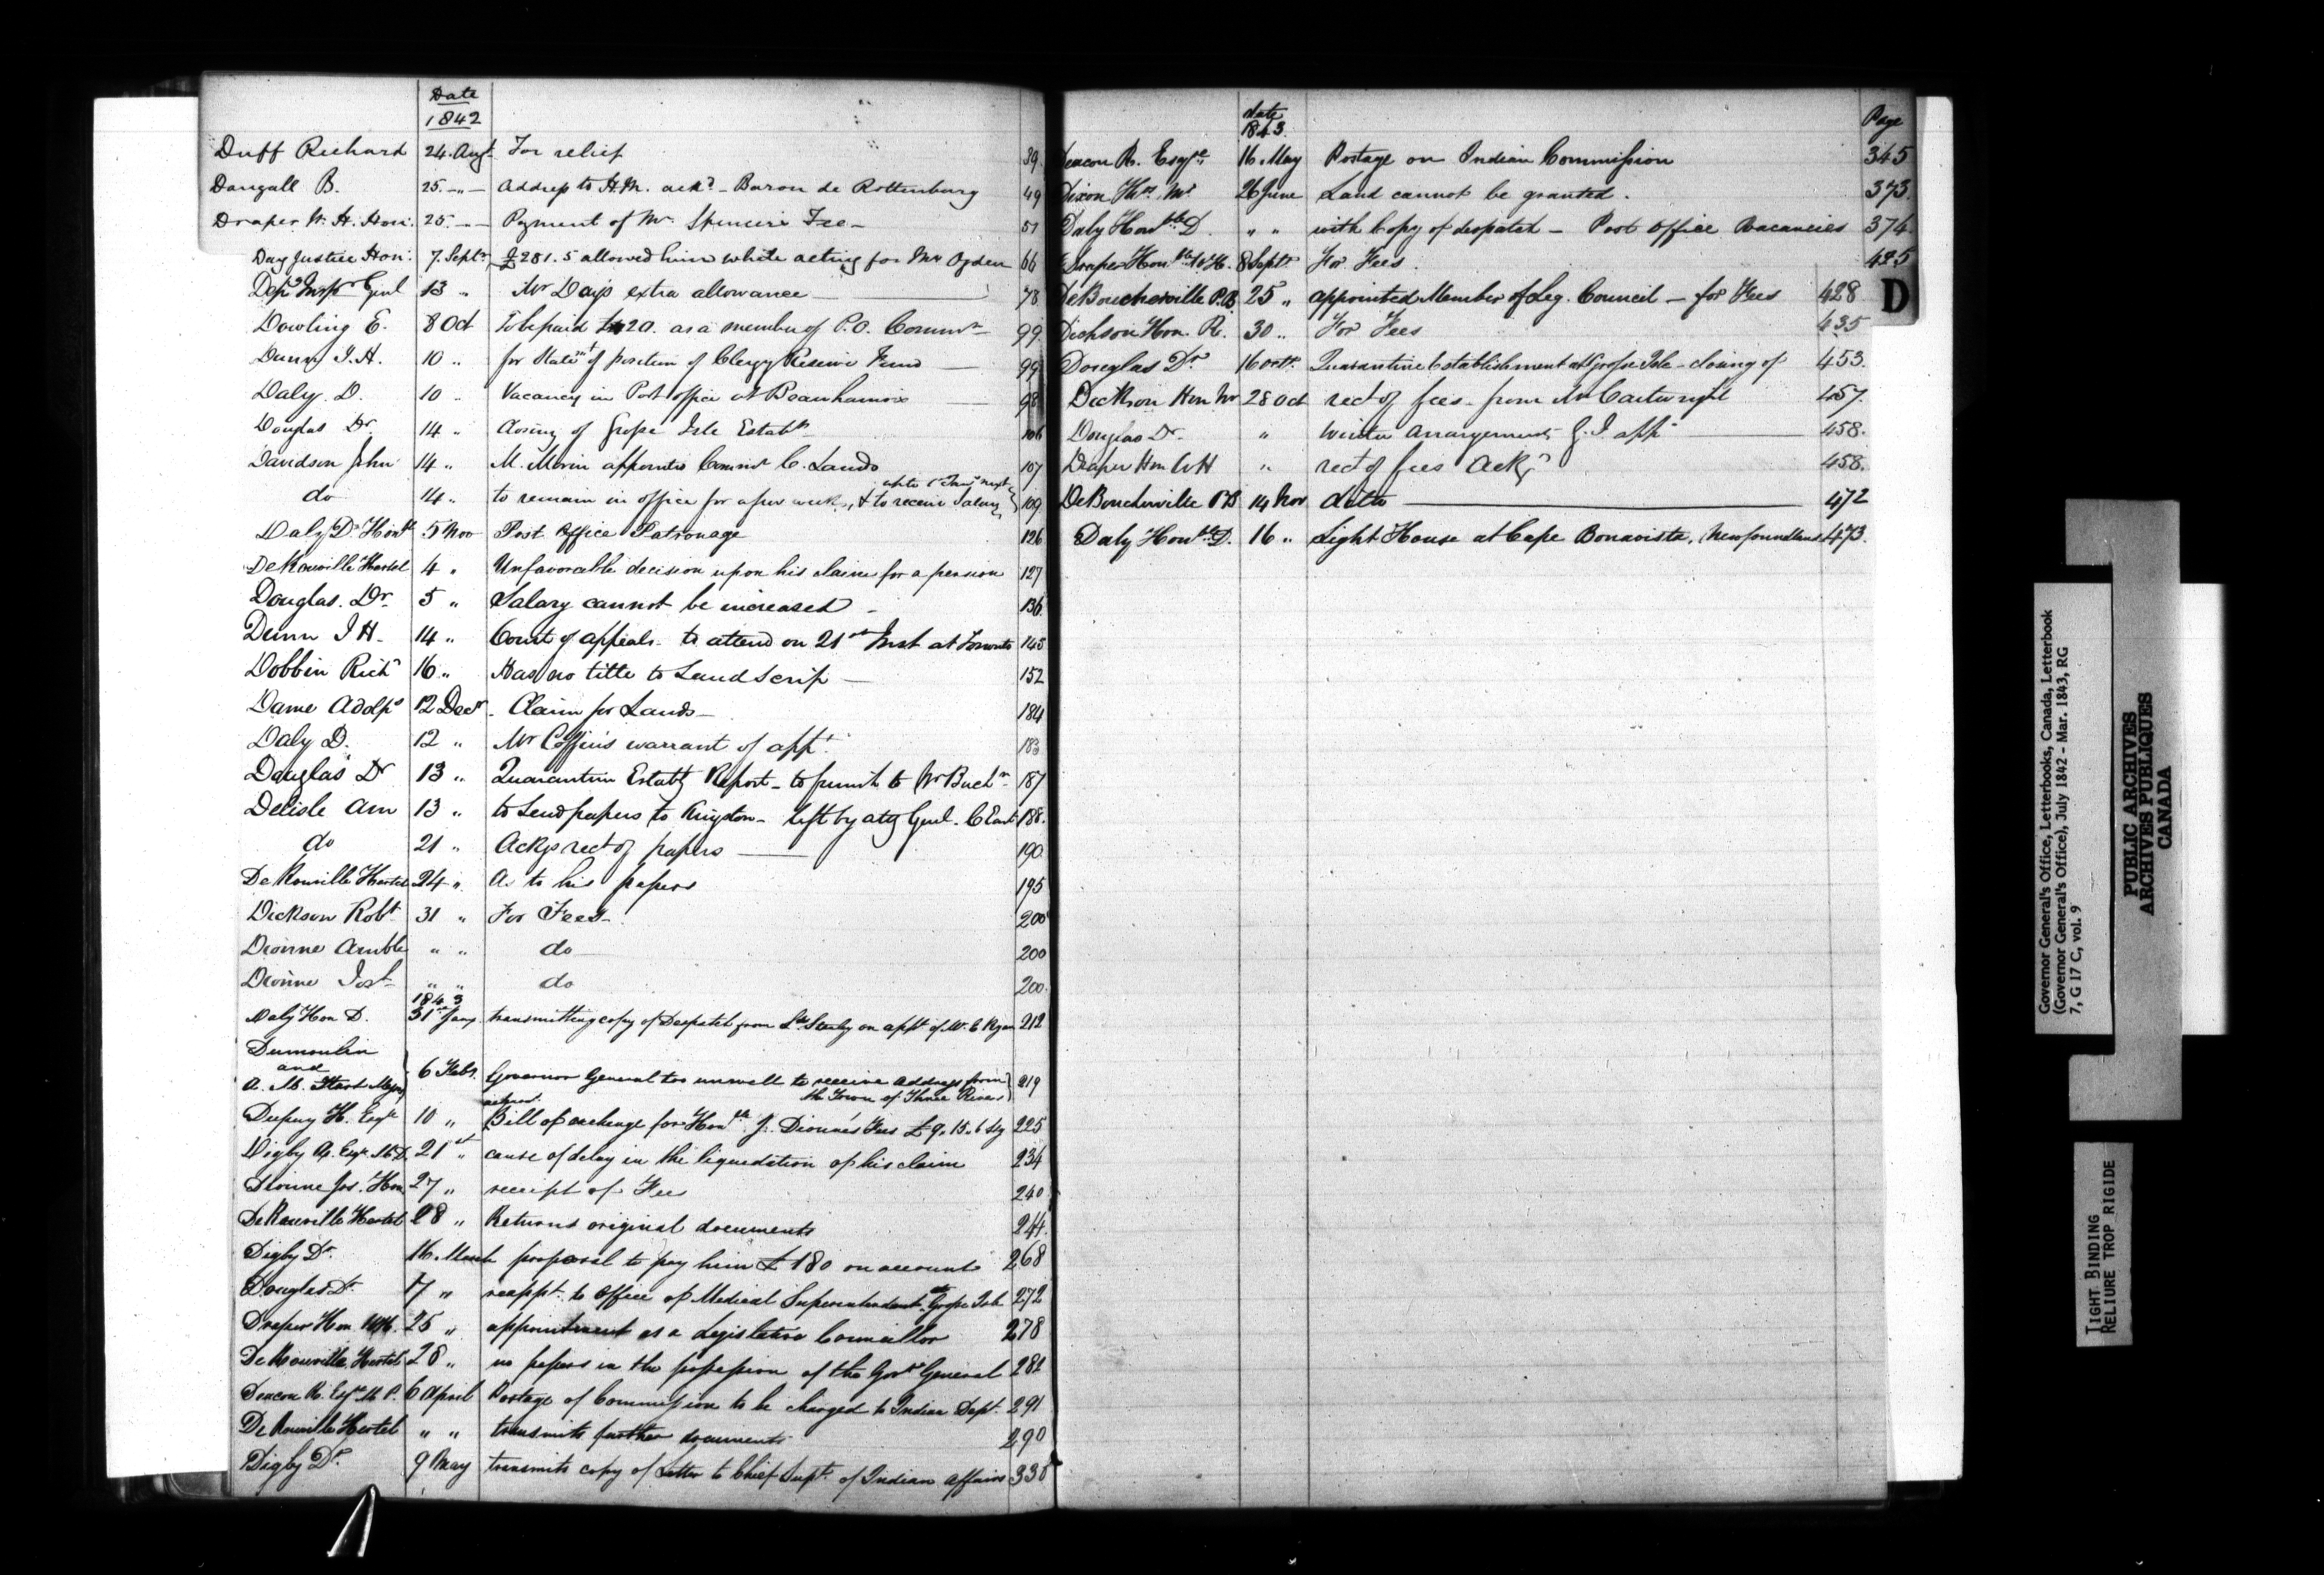 Date
1842
Duff Richard 24. Augt For relief 39.
Dougall B. 25. -"- Address to H.M. ackd - Baron de Rottenburg 49
Draper W. H. Hon: 25. -- Payment of Mr Spencers Fee - 51
Day Justice Hon: 7. Septr £281.5 allowed him while acting for Mr Ogden 66
Depy Inspr Genl 13 " Mr Days extra allowance 78
Dowling E. 8 Oct To be paid £120. as a member of P.O. Commn 99
Dunn J. H. 10 " for Statemt of position of Clergy Reserve Fund 99
Daly. D. 10 " Vacancy in Post office at Beauharnois 98
Douglas Dr. 14 " Closing of Grosse Isle Establt 106
Davidson John 14 " M. Morin appointed Commr C. Lands 107
do 14 " to remain in office for a few weeks, & to receive Salary up to 1st Jany next 109
Daly D. Honble 5 Nov Post Office Patronage 126
De Rouville Hertel 4 " Unfavorable decision upon his claim for a pension 127
Douglas. Dr. 5 " Salary cannot be increased - 136
Dunn J H - 14 " Court of appeals. to attend on 21st Inst at Toronto 145
Dobbin Richd 16 " Has no title to Land Scrip - 152
Dame Adolps 12 Decr - Claim for Lands - 184
Daly D. 12 " Mr Coffin's warrant of appt. 183
Douglas Dr 13 " Quarantine Establt Report - to furnish to Mr Buchn 187
Delisle Am 13 " to Send papers to Kingston - left by atty Genl. C East 188.
do 21 " Ackgs rect of papers 190
De Rouville Hertel 24 " As to his papers 195
Dickson Robt 31 " For Fees - 200
Dionne Amble " " do 200
Dionne Jos. " " do 200.
1843
Daly Hon D. 31st Jany. transmitting copy of Despatch from Ld. Stanley on appt of Mr. C Ryan 212
Dumoulin
and
A. M. Hart 6 Feby. Governor General too unwell to receive Address from 219
the Town of Three Rivers
H. Esqre 10 " Bill of exchange for Honble J. Dionne's Fees £9.15.6 Stg 225
Digby A. Esqr. M.D. 21st " cause of delay in the liquidation of his claim 234
Dionne Jos. Hon 27 " receipt of Fees 240
De Rouville Hertel 28 " Returns original documents 244.
Digby Dr. 16. March proposal to pay him £180 on account 268
Douglas Dr. 17 " reappt. to Office of Medical Superintendent at Grosse Isle 272
Draper Hon. W.H. 25 " appointment as a Legislative Councillor 278
De Rouville Hertel 28 " no papers in the possession of the Govr General 282
Deacon R. Esqre M.P. 6 April Postage of Commission to be charged to Indian Dept. 291
De Rouville Hertel " " transmits further documents 290
Digby Dr. 9 May transmits copy of Letter to Chief Supt. of Indian affairs 338
date
1843.
Page
Deacon R. Esqre 16. May Postage on Indian Commission 345
Dixon Thos Mr 26 June Land cannot be granted. 373.
Daly Honble D. " " with Copy of despatch - Post Office Vacancies 374.
Draper Honble W.H. 8 Septr For Fees. 425
DeBoucherville P.B. 25 " appointed Member of Leg. Council - for Fees 428
D
Dickson Hon. R. 30 " For Fees 435
Douglas Dr 16 octr. Quarantine Establishment at Grosse Isle - closing of 453.
Dickson Hon Mr 28 Oct rect of fees - from Mr Cartwright 457.
Douglas Dr. " Winter Arrangements G. I. appd 458.
Draper Hon WH " rect of fees Ackd 458.
DeBoucherville P.B 14 Nov ditto 472
Daly Honble D. 16 " Light House at Cape Bonavista, Newfoundland 473.
Governor General's Office, Letterbooks, Canada, Letterbook
(Governor General's Office), July 1842 - Mar. 1843, RG
7, G 17 C, vol. 9
PUBLIC ARCHIVES
ARCHIVES PUBLIQUES
CANADA
TIGHT BINDING
RELIURE TROP RIGIDE